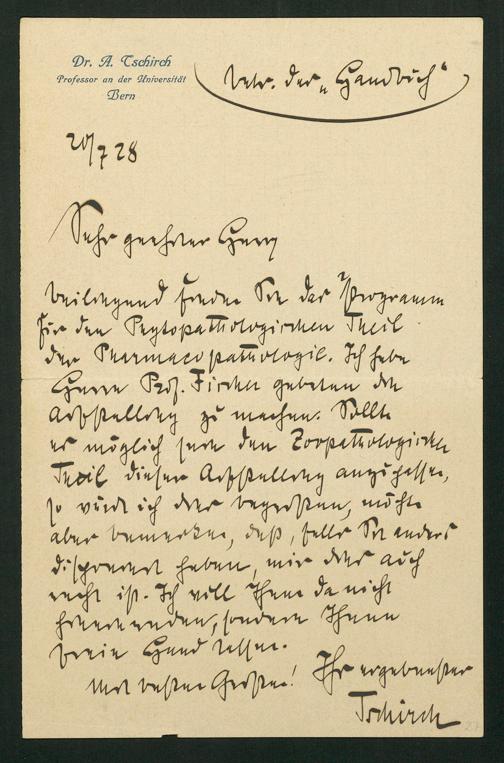 Dr. A. Tschirch
Professor an der Universität
Bern
betr. der „Handbuch“
20/7 28
Sehr geehrter Herr
beiliegend finden Sie das Programm
für den Phytopathologischen Theil
der Pharmacopathologie. Ich habe
Herrn Prof. Fischer gebeten die
Aufstellung zu machen. Sollte
es möglich sein den Zoopathologischen
Theil dieser Aufstellung anzupassen,
so würde ich das begrüssen, möchte
aber bemerken, daß, falls Sie anders
disponirt haben, mir das auch
recht ist. Ich will Ihnen da nicht
hineinreden, sondern Ihnen
freie Hand lassen.
Mit besten Grüssen! Ihr ergebenster
Tschirch